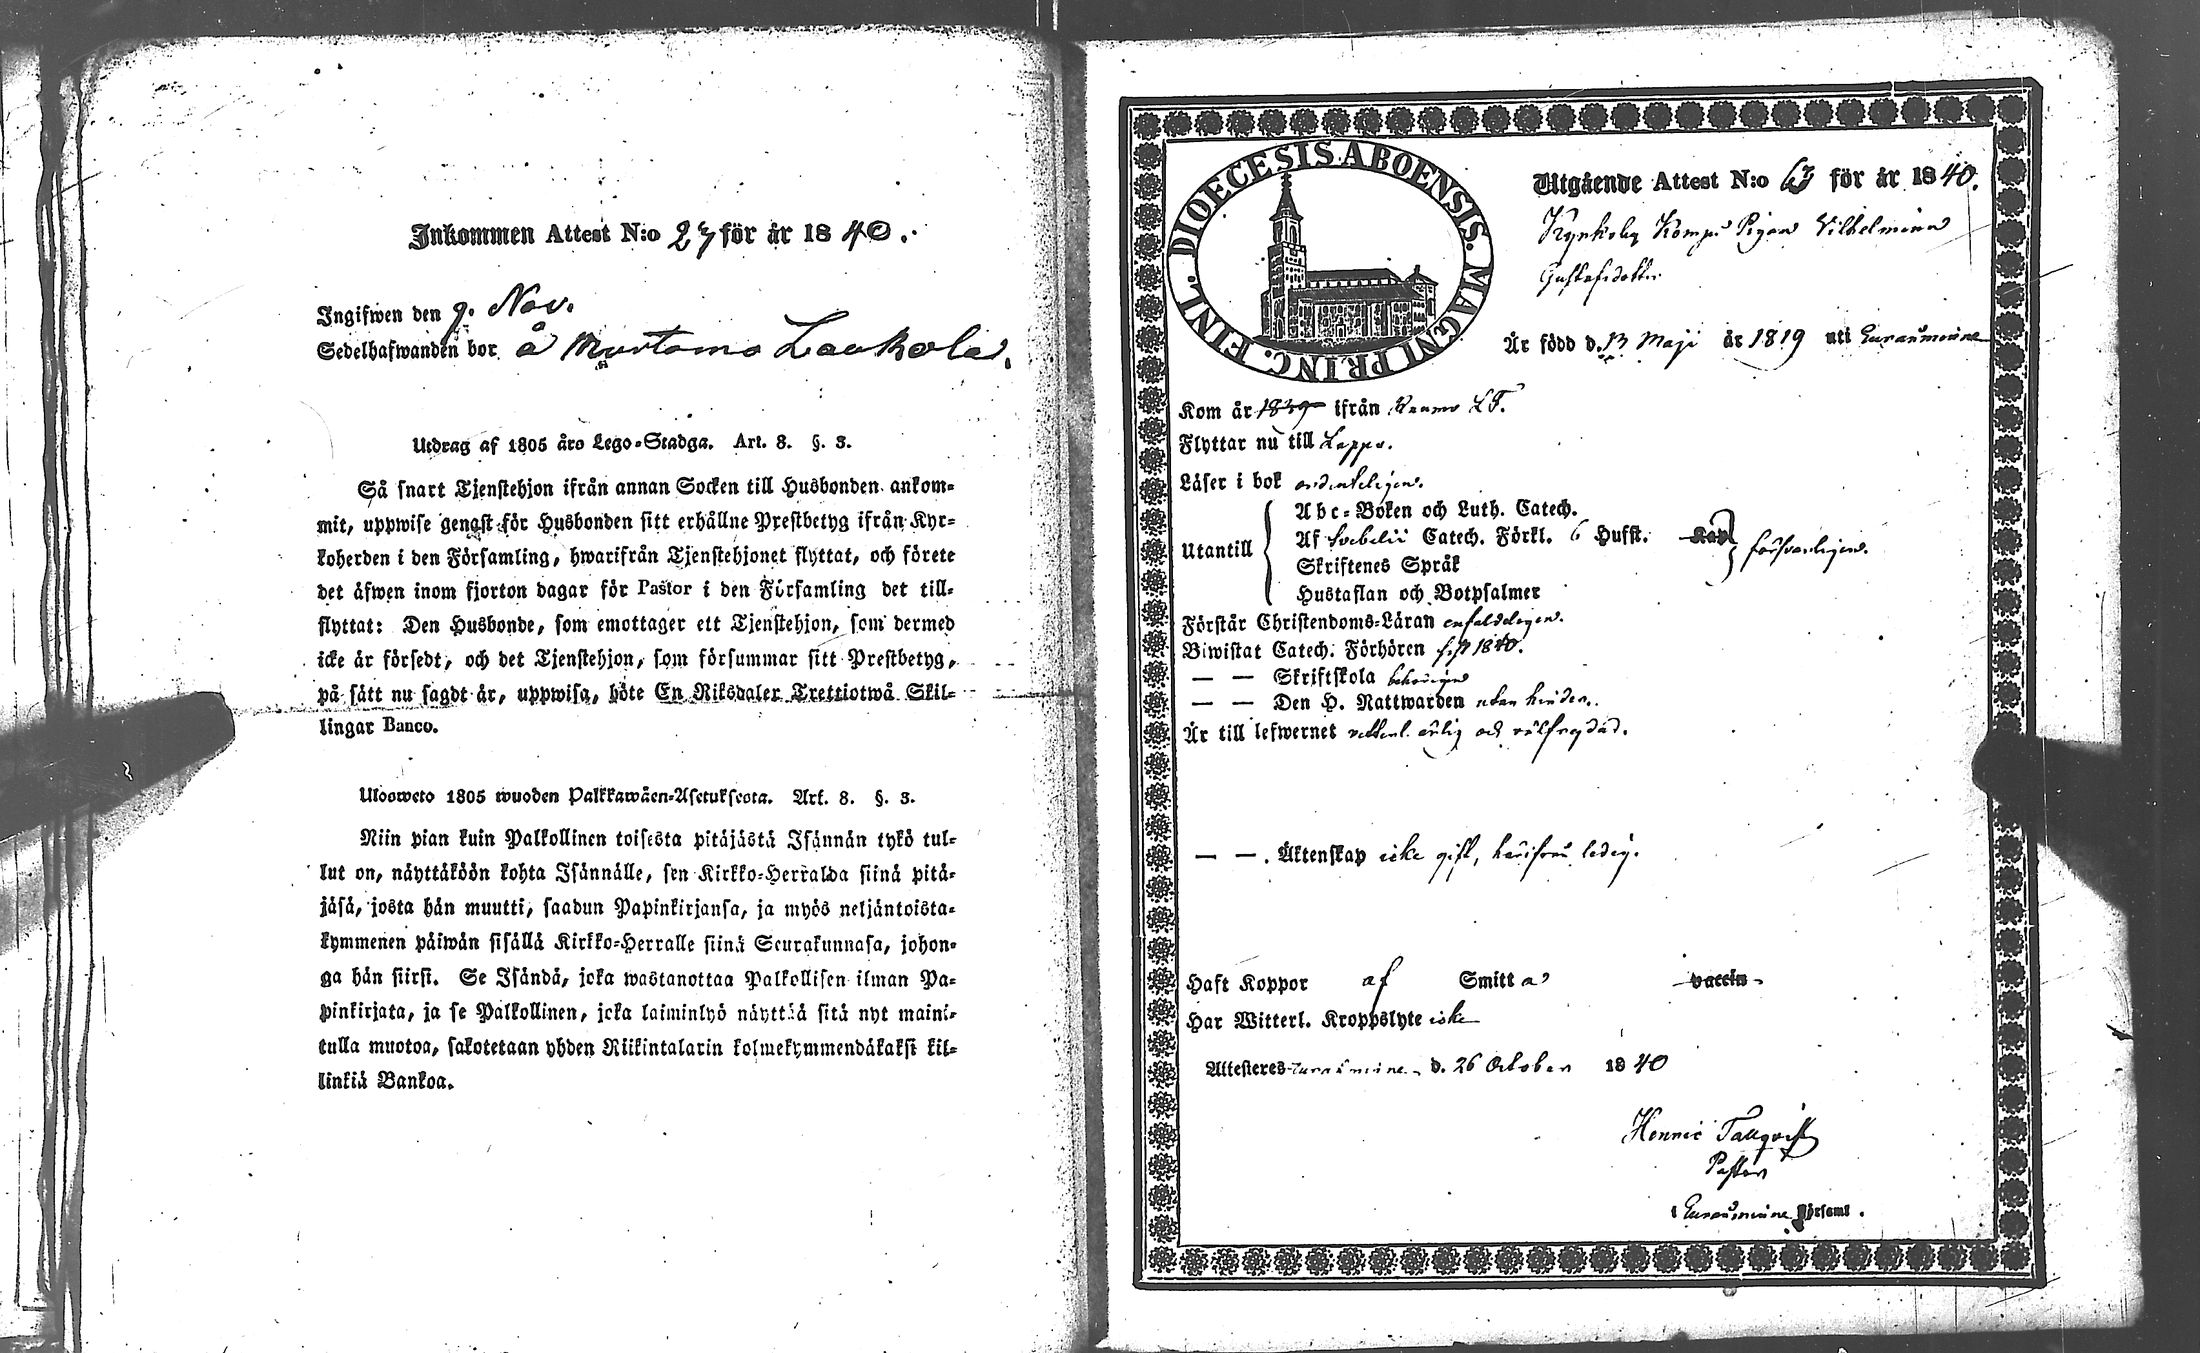 Inkommen Attest N:o 27 för år 1840.
Ingifwen den 9. Nov.
Sedelhafwanden bor å Murtamo Laukola.
Utdrag af 1805 års Lego-Stadga. Art. 8. §. 3.
Så snart Tjenstehjon ifrån annan Socken till Husbonden ankom-
mit, uppwise genast för Husbonden sitt erhållne Prestbetyg ifrån Kyr-
koherden i den Församling, hwarifrån Tjenstehjonet flyttat, och förete
det äfwen inom fjorton dagar för Pastor i den Församling det till-
flyttat: Den Husbonde, som emottager ett Tjenstehjon, som dermed
icke är försedt, och det Tjenstehjon, som försummar sitt Prestbetyg,
på sätt nu sagdt är, uppwisa, böte En Riksdaler Trettiotwå Skil-
lingar Banco.
Ulosweto 1805 wuoden Palkkawäen-Asetuksesta. Art. 8. §. 3.
Niin pian kuin Palkollinen toisesta pitäjästä Isännän tykö tul-
lut on, näyttäköön kohta Isännälle, sen Kirkko-Herralda siinä pitä-
jäsä, josta hän muutti, saadun Papinkirjansa, ja myös neljäntoista-
kymmenen päiwän sisällä Kirkko-Herralle siinä Seurakunnasa, johon-
ga hän siirsi. Se Isändä, joka wastanottaa Palkollisen ilman Pa-
pinkirjata, ja se Palkollinen, joka laiminlyö näyttää sitä nyt maini-
tulla muotoa, sakotetaan yhden Riikintalarin kolmekymmendäkaksi kil-
linkiä Bankoa.
DIOECESIS ABOENSIS. MAGNI PRINC. FINL.
Utgående Attest N:o 63 för år 1840.
Pigan Vilhelmina
Gustafsdotter
Är född d. 13 Maji år 1819 uti Euraåminne
Kom år 1839 ifrån Raumo LF.
Flyttar nu till Lappo.
Läser i bok ordenteligen.
Utantill
Abc-Boken och Luth. Catech.
Af Svebelii Catech. Förkl. 6 Hufst. Kap
Skriftenes Språk
Hustaflan och Botpsalmer
försvarligen.
Förstår Christendoms-Läran enfaldeligen.
Biwistat Catech. Förhören sist 1840.
— — Skriftskola behörigen
— — Den H. Nattwarden utan hinder.
Är till lefwernet veterl. ärlig och välfrejdad.
— —. Äktenskap icke gift, härifrån ledig.
Haft Koppor af Smitta vaccin
Har Witterl. Kroppslyte icke
Attesteres Euraåminne d. 26 October 1840
Henric Tallqvist
Pastor
i Euraåminne Församl.